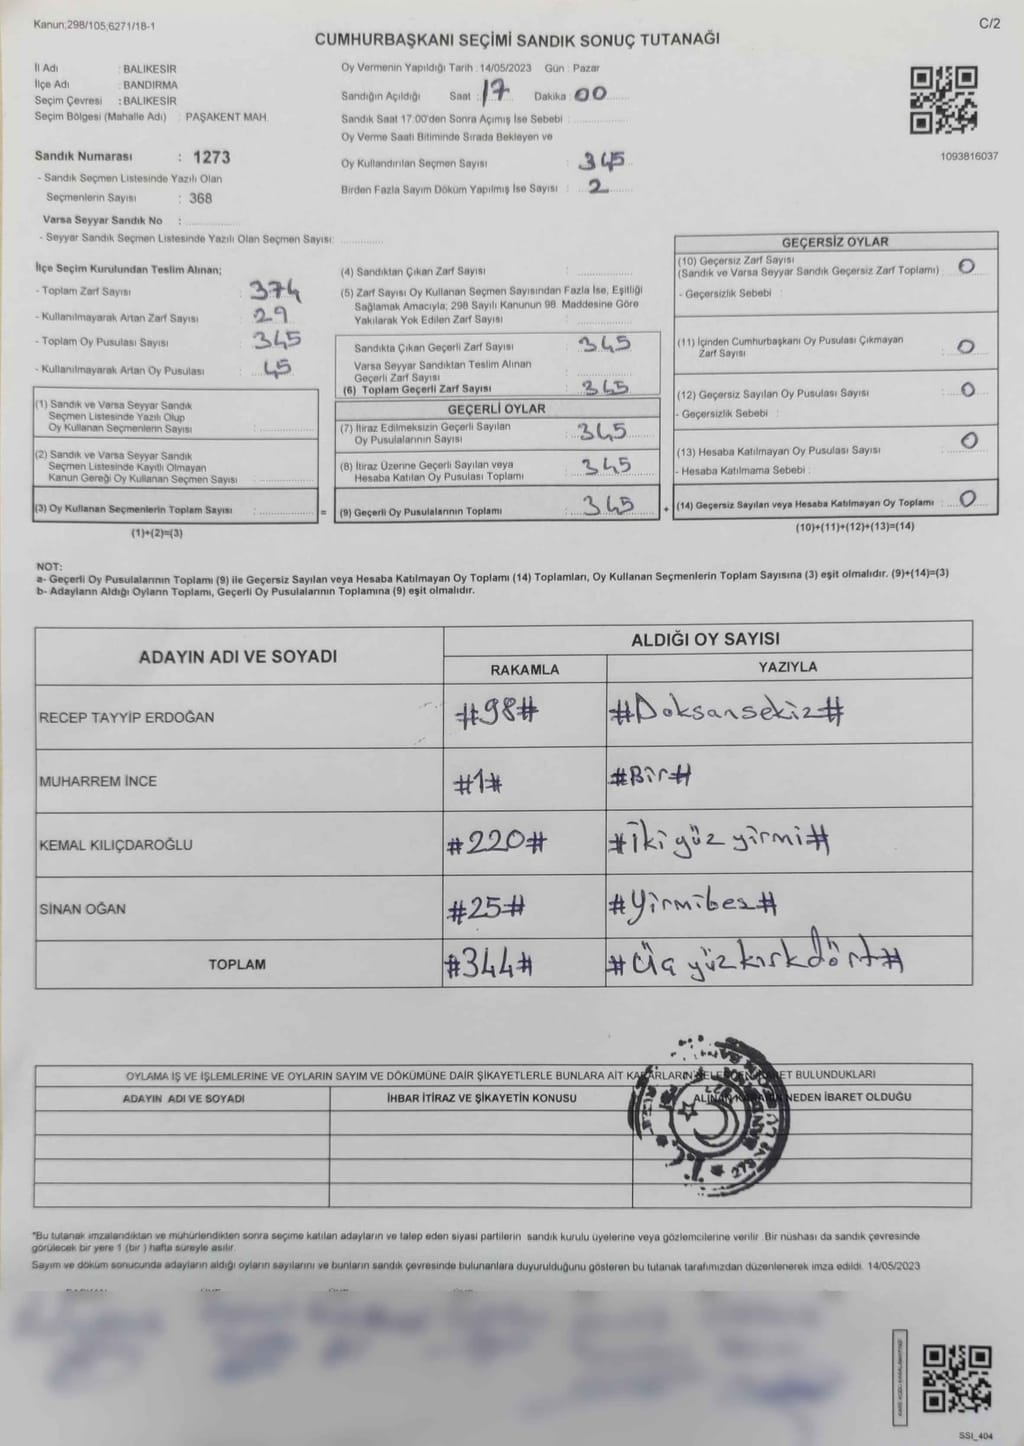 Kanun,298/105,6271/18-1
C/2
CUMHURBAŞKANI SEÇİMİ SANDIK SONUÇ TUTANAĞI
İl Adı : BALIKESİR
İlçe Adı : BANDIRMA
Seçim Çevresi : BALIKESİR
Seçim Bölgesi (Mahalle Adı) : PAŞAKENT MAH.
Sandık Numarası : 1273
- Sandık Seçmen Listesinde Yazılı Olan
Seçmenlerin Sayısı : 368
Varsa Seyyar Sandık No :
- Seyyar Sandık Seçmen Listesinde Yazılı Olan Seçmen Sayısı:
Oy Vermenin Yapıldığı Tarih : 14/05/2023 Gün : Pazar
Sandığın Açıldığı Saat : 17 Dakika : 00
Sandık Saat 17:00'den Sonra Açımış İse Sebebi :
Oy Verme Saati Bitiminde Sırada Bekleyen ve
Oy Kullandırılan Seçmen Sayısı : 345
Birden Fazla Sayım Döküm Yapılmış İse Sayısı : 2
1093816037
İlçe Seçim Kurulundan Teslim Alınan;
- Toplam Zarf Sayısı : 374
- Kullanılmayarak Artan Zarf Sayısı : 29
- Toplam Oy Pusulası Sayısı : 345
- Kullanılmayarak Artan Oy Pusulası : 45
(1) Sandık ve Varsa Seyyar Sandık
Seçmen Listesinde Yazılı Olup
Oy Kullanan Seçmenlerin Sayısı :
(2) Sandık ve Varsa Seyyar Sandık
Seçmen Listesinde Kayıtlı Olmayan
Kanun Gereği Oy Kullanan Seçmen Sayısı :
(3) Oy Kullanan Seçmenlerin Toplam Sayısı :
(1)+(2)=(3)
=
(4) Sandıktan Çıkan Zarf Sayısı :
(5) Zarf Sayısı Oy Kullanan Seçmen Sayısından Fazla İse, Eşitliği
Sağlamak Amacıyla; 298 Sayılı Kanunun 98. Maddesine Göre
Yakılarak Yok Edilen Zarf Sayısı :
Sandıkta Çıkan Geçerli Zarf Sayısı : 345
Varsa Seyyar Sandıktan Teslim Alınan
Geçerli Zarf Sayısı :
(6) Toplam Geçerli Zarf Sayısı : 345
GEÇERLİ OYLAR
(7) İtiraz Edilmeksizin Geçerli Sayılan
Oy Pusulalarının Sayısı : 345
(8) İtiraz Üzerine Geçerli Sayılan veya
Hesaba Katılan Oy Pusulası Toplamı : 345
(9) Geçerli Oy Pusulalarının Toplamı : 345
+
GEÇERSİZ OYLAR
(10) Geçersiz Zarf Sayısı
(Sandık ve Varsa Seyyar Sandık Geçersiz Zarf Toplamı) : 0
- Geçersizlik Sebebi :
(11) İçinden Cumhurbaşkanı Oy Pusulası Çıkmayan
Zarf Sayısı : 0
(12) Geçersiz Sayılan Oy Pusulası Sayısı : 0
- Geçersizlik Sebebi :
(13) Hesaba Katılmayan Oy Pusulası Sayısı : 0
- Hesaba Katılmama Sebebi :
(14) Geçersiz Sayılan veya Hesaba Katılmayan Oy Toplamı : 0
(10)+(11)+(12)+(13)=(14)
NOT:
a- Geçerli Oy Pusulalarının Toplamı (9) ile Geçersiz Sayılan veya Hesaba Katılmayan Oy Toplamı (14) Toplamları, Oy Kullanan Seçmenlerin Toplam Sayısına (3) eşit olmalıdır. (9)+(14)=(3)
b- Adayların Aldığı Oyların Toplamı, Geçerli Oy Pusulalarının Toplamına (9) eşit olmalıdır.
ADAYIN ADI VE SOYADI
ALDIĞI OY SAYISI
RAKAMLA YAZIYLA
RECEP TAYYİP ERDOĞAN #98# #Doksansekiz#
MUHARREM İNCE #1# #Bir#
KEMAL KILIÇDAROĞLU #220# #İki yüz yirmi#
SİNAN OĞAN #25# #Yirmibeş#
TOPLAM #344# #Üç yüz kırkdört#
OYLAMA İŞ VE İŞLEMLERİNE VE OYLARIN SAYIM VE DÖKÜMÜNE DAİR ŞİKAYETLERLE BUNLARA AİT KARARLARIN NELERDEN İBARET BULUNDUKLARI
ADAYIN ADI VE SOYADI
İHBAR İTİRAZ VE ŞİKAYETİN KONUSU
ALINAN KARARIN NEDEN İBARET OLDUĞU
*Bu tutanak imzalandıktan ve mühürlendikten sonra seçime katılan adayların ve talep eden siyasi partilerin sandık kurulu üyelerine veya gözlemcilerine verilir. Bir nüshası da sandık çevresinde
görülecek bir yere 1 (bir) hafta süreyle asılır.
Sayım ve döküm sonucunda adayların aldığı oyların sayılarını ve bunların sandık çevresinde bulunanlara duyurulduğunu gösteren bu tutanak tarafımızdan düzenlenerek imza edildi. 14/05/2023
SSI_404